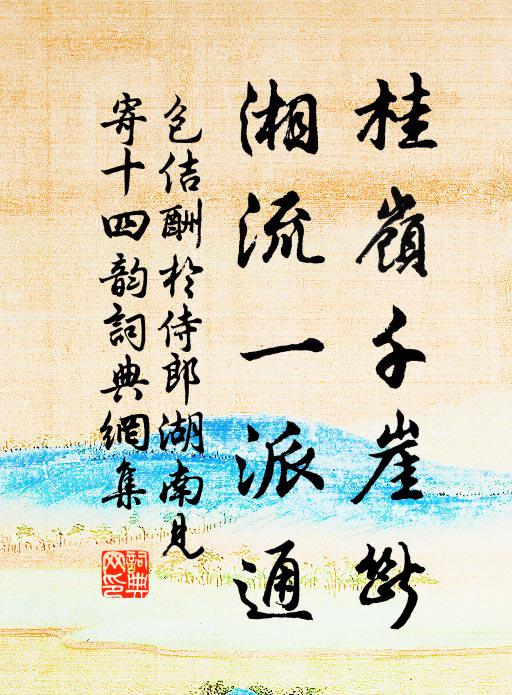 桂嶺千崖斷
湘流一派通
包佶酬於侍郎湖南見
寄十四韵詞典網集
詞典
网印